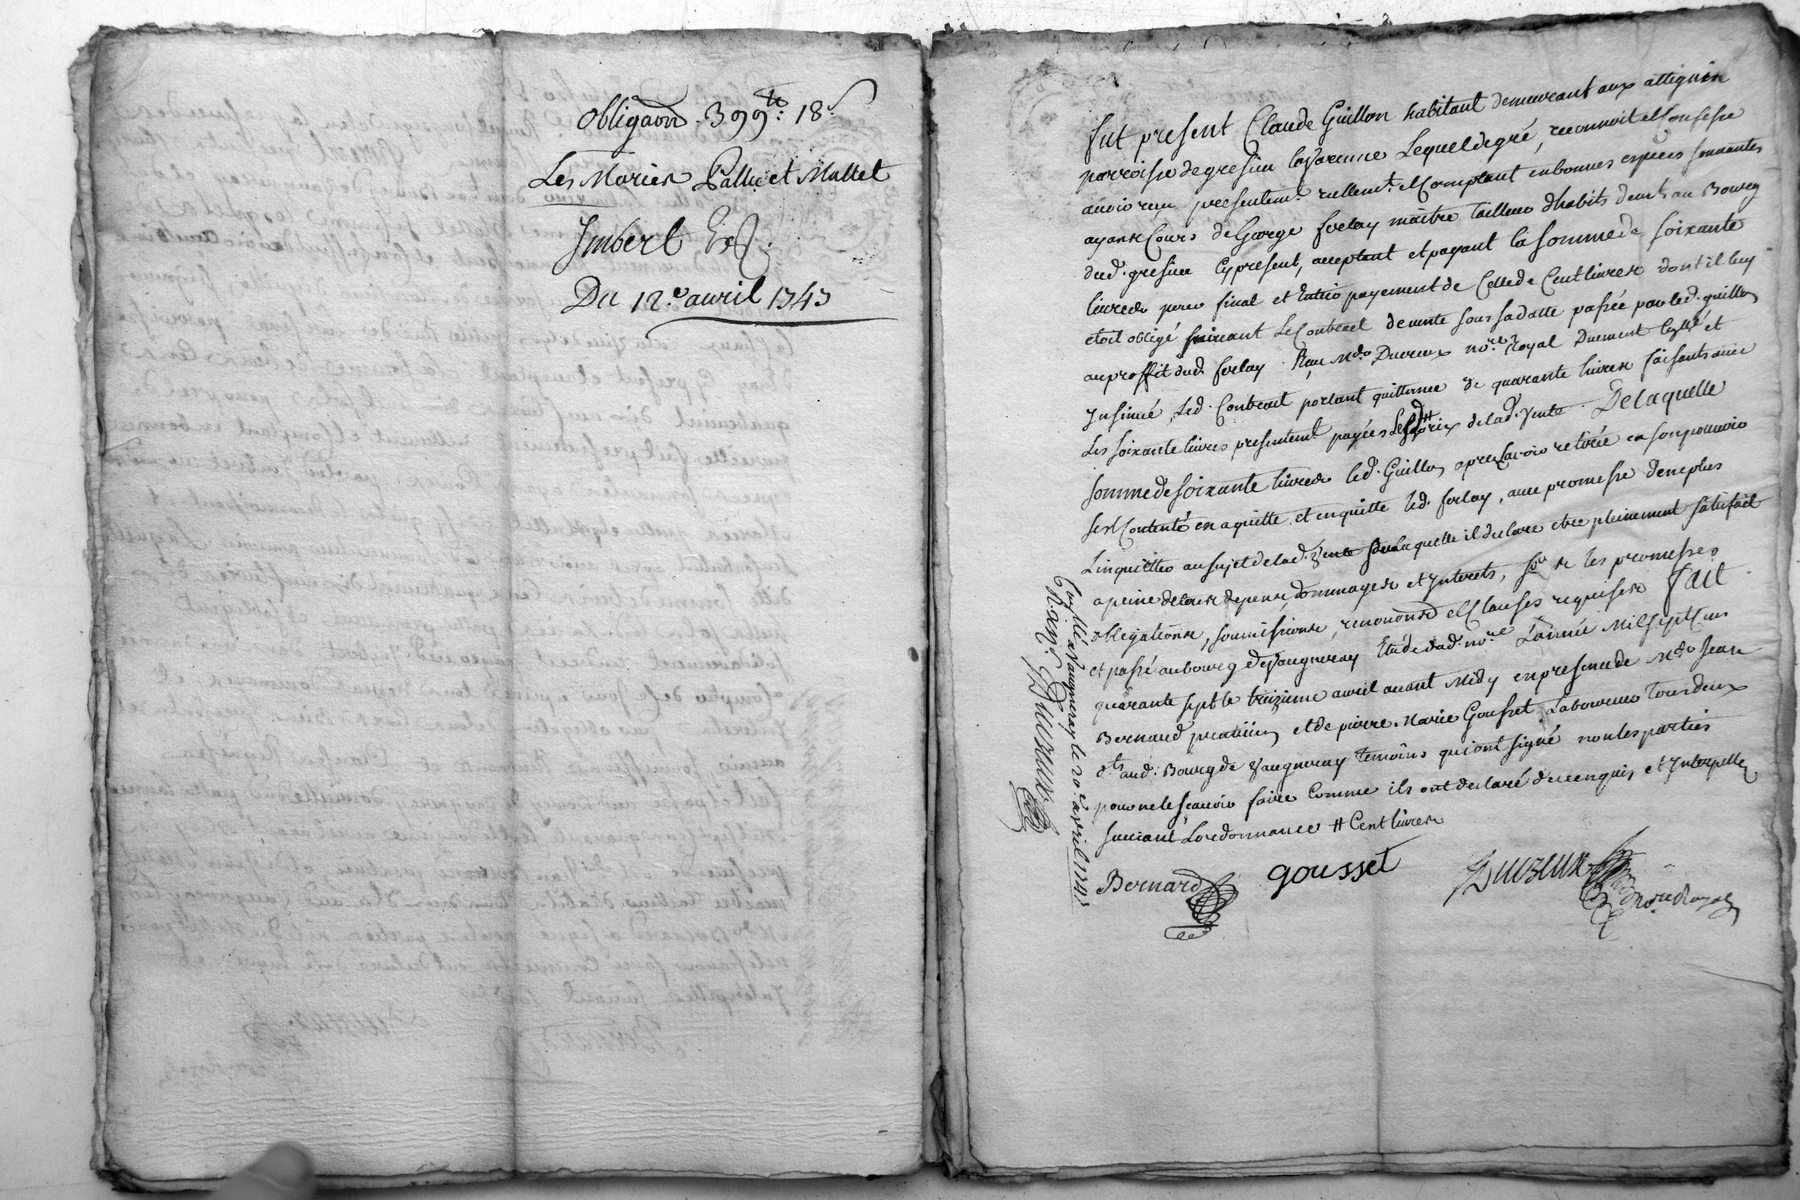 obligaõn. 399.tt 18.s
Les Mariés Pallu et Mallet
Imbert
Du 12.e avril 1747
fut present Claude Guillon habitant demeurant aux attignies
parroisse de gresieu lavarenne Lequel degré, reconnoit et Confesse
avoir reçu presentemt. reellemt. et Comptant en bonnes especes sonnantes
ayants Cours de George forlay maitre tailleur d'habits demt. au Bourg
dud. gresieu cy present, acceptant et payant la somme de soixante
livres pour final et Entier payement de Celle de Cent livres dont il luy
etoit obligé suivant Le Contract de vente sous sa datte passée par led. guillon
au proffit dud. forlay. Par Me. Duvreux nore. Royal Duement Controllé et
Insinué, Led. Contract portant quittance de quarante livres faisants avec
Les soixante livres presentemt. payées Led. prix de lad. Vente. De laquelle
somme de soixante livres led. Guillon apres l'avoir retirée en son pouvoir
sest Contenté en a quitté et en quitte led. forlay, avec promesse den plus
L'inquietter au sujet de lad. Vente De laquelle il declare etre pleinement satisfait
a peine de tous depens, dommages et Interets, sous les promesses
obligations, soumissions, renonons. et Clauses requises fait
et passé au bourg de Vaugneray Etude dud. nore. L'année Mil sept Cens
quarante sept le treizieme avril avant Midy en presence de Me. Jean
Bernard praticien et de pierre Marie Gousset Laboureur tous deux
dts. aud. Bourg de Vaugneray temoins qui ont signé non les parties
pour ne le sçavoir faire Comme ils ont declaré de ce enquis et Interpellés
suivant L'ordonnance # Cent livres
Bernard gousset Duvzeux nore Royal
Conllé a Vaugneray le 20e avril 1747
R.